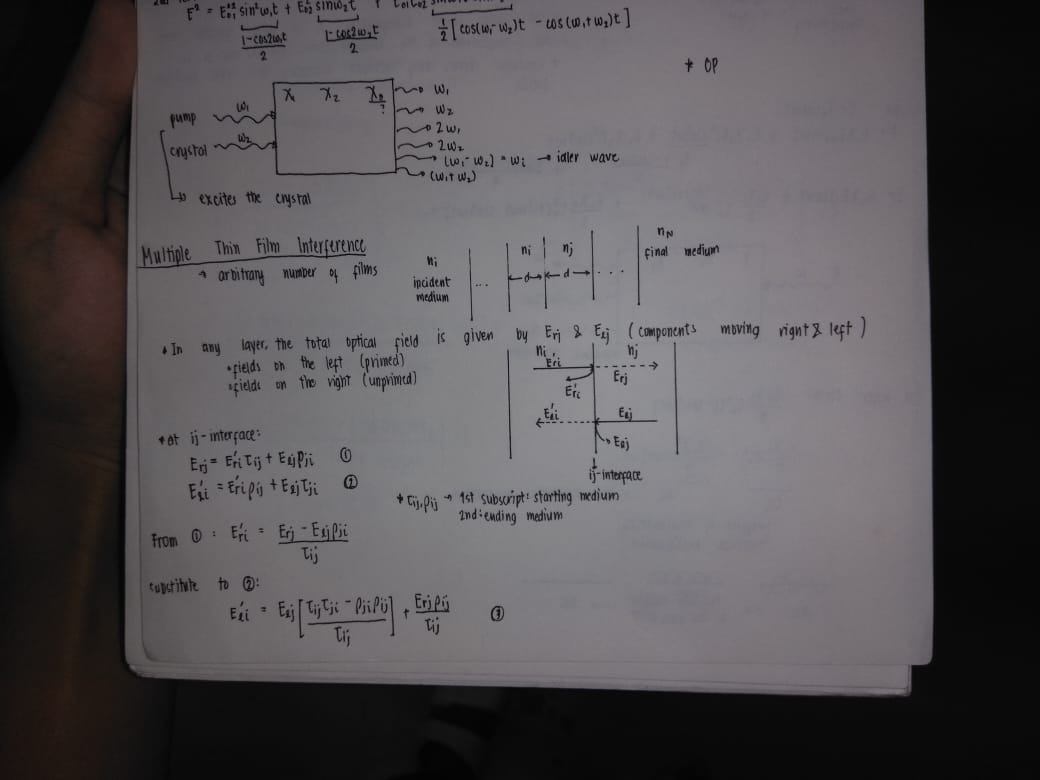 E² = E₀₁² sin²ω₁t + E₀₂² sinω₂t + E₀₁E₀₂
1-cos2ω₁t / 2
1-cos2ω₂t / 2
1/2 [cos(ω₁-ω₂)t - cos(ω₁+ω₂)t]
* OP
χ₁ χ₂ χ₃ ?
pump ω₁
crystal ω₂
ω₁
ω₂
2ω₁
2ω₂
(ω₁-ω₂) = ωᵢ → idler wave
(ω₁+ω₂)
↳ excites the crystal
Multiple Thin Film Interference
* arbitrary number of films
nᵢ incident medium
...
nᵢ nⱼ
d d
...
n_N final medium
* In any layer, the total optical field is given by E_rj & E_ℓj (components moving right & left)
* fields on the left (primed)
* fields on the right (unprimed)
nᵢ nⱼ
E'_ri E_rj
E'_ri
E'_ℓi E_ℓj
E_ℓj
ij-interface
* at ij-interface:
E_rj = E'_ri τ_ij + E_ℓj ρ_ji ①
E'_ℓi = E'_ri ρ_ij + E_ℓj τ_ji ②
* τ_ij, ρ_ij → 1st subscript: starting medium
2nd: ending medium
From ① : E'_ri = (E_rj - E_ℓj ρ_ji) / τ_ij
substitute to ②:
E'_ℓi = E_ℓj [(τ_ij τ_ji - ρ_ji ρ_ij) / τ_ij] + E_rj ρ_ij / τ_ij ③